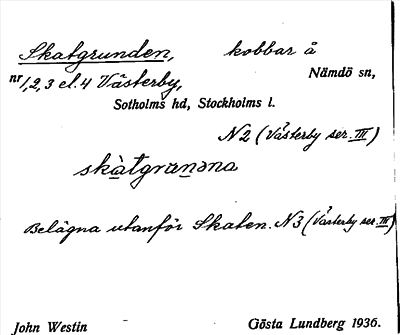 Skatgrunden, kobbar å
nr 1, 2, 3 el. 4 Västerby, Nämdö sn,
Sotholms hd, Stockholms l.
N 2 (Västerby ser. III)
skàtgrunəna
Belägna utanför Skaten. N 3 (Västerby ser. III)
John Westin Gösta Lundberg 1936.